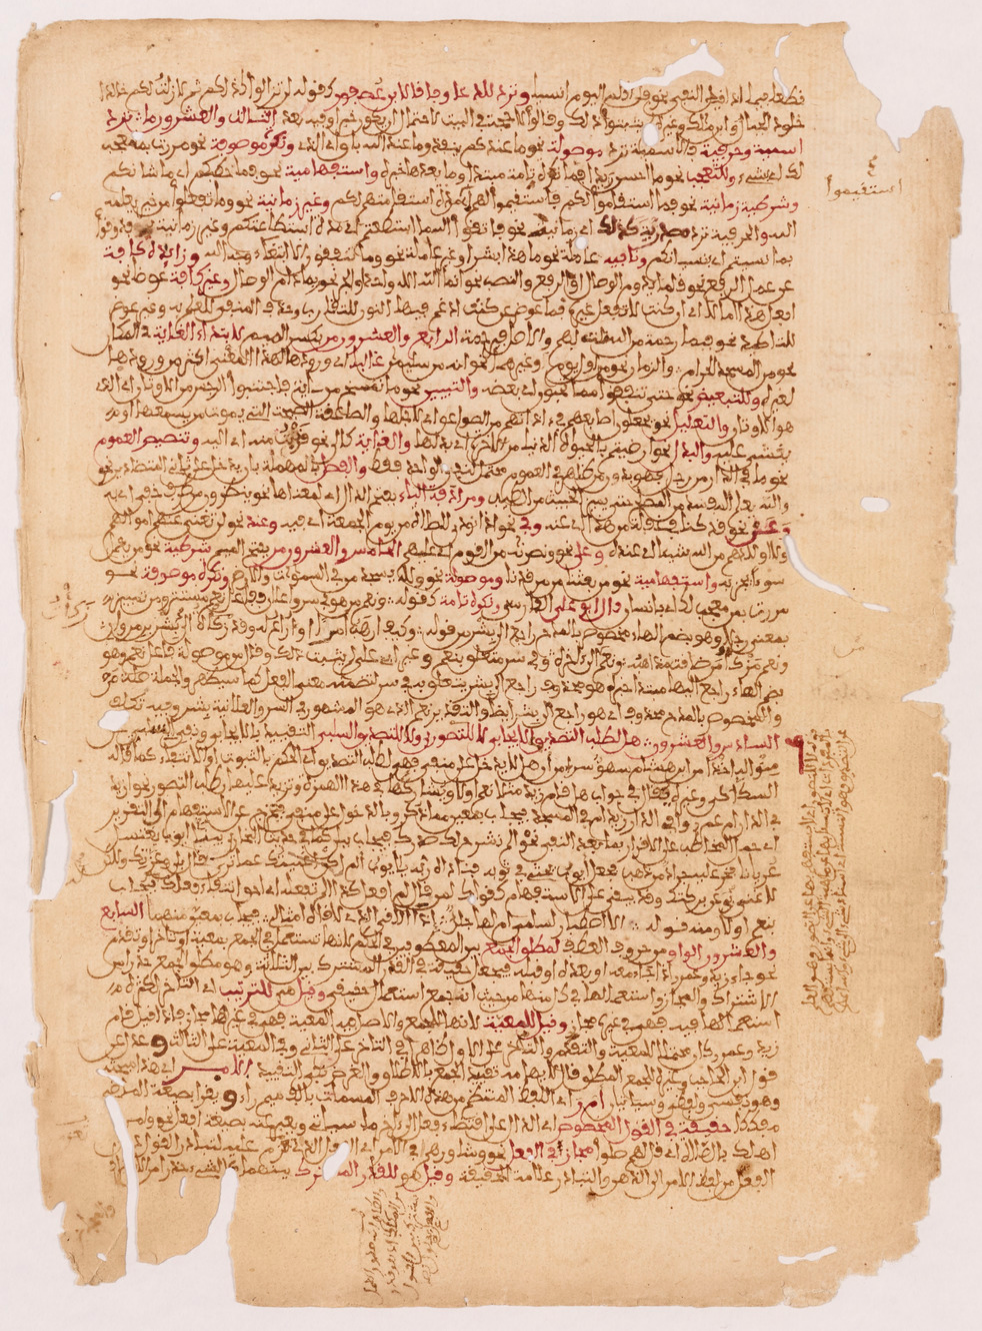 فضعيف فيما  اليوم انسيا وترد للدعاء وفاقا لابن عصفور كقوله لن تزالوا كذلكم ثم لا زلت لكم خالدا
خلود الجبال وابن مالك وغيره لم يثبتوا ذلك وقالوا لا حجة في البيت لاحتمال ان يكون خبرا وفيه بعد الثالث والعشرون ما ترد
اسمية وحرفية فالاسمية ترد موصولة نحو ما عندكم ينفد وما عند الله باق اي الذي ونكرة موصوفة نحو مررت بما معجب
لك اي بشيء وللتعجب نحو ما احسن زيدا فما نكرة تامة مبتدا وما بعدها خبره واستفهامية نحو فما خطبكم اي ما شانكم
وشرطية زمانية نحو فما استقاموا لكم فاستقيموا لهم اي مدة استقامتهم لكم وغير زمانية نحو وما تفعلوا من خير يعلمه
الله والحرفية ترد مصدرية كذلك اي زمانية نحو فاتقوا الله ما استطعتم اي مدة استطاعتكم وغير زمانية نحو فذوقوا
بما نسيتم اي بنسيانكم ونافية عاملة نحو ما هذا بشرا وغير عاملة نحو وما تنفقون الا ابتغاء وجه الله وزائدة كافة
عن عمل الرفع نحو قلما يدوم الوصال او الرفع والنصب نحو انما الله اله واحد او الجر نحو ربما دام الوصال وغير كافة عوضا نحو
افعل هذا اما لا اي ان كنت لا تفعل غيره فما عوض عن كنت ادغم فيها النون للتقارب وحذف المنفي للعلم به وغير عوض
للتاكيد نحو فبما رحمة من الله لنت لهم والاصل فبرحمة الرابع والعشرون من بكسر الميم لابتداء الغاية في المكان
نحو من المسجد الحرام والزمان نحو من اول يوم وغيرهما نحو انه من سليمن غالبا اي ورودها لهذا المعنى اكثر من ورودها
لغيره وللتبعيض نحو حتى تنفقوا مما تحبون اي بعضه والتبيين نحو ما ننسخ من اية فاجتنبوا الرجس من الاوثان اي الذي
هو الاوثان والتعليل نحو يجعلون اصابعهم في اذانهم من الصواعق اي لاجلها والصاعقة الصيحة التي يموت من يسمعها او
يغشى عليه والبدل نحو ارضيتم بالحيوة الدنيا من الاخرة اي بدلها والغاية كالى نحو قربت منه اي اليه وتنصيص العموم
نحو ما في الدار من رجل فهو بدون من ظاهر في العموم محتمل لنفي الواحد فقط والفصل بالمهملة بان تدخل على ثاني المتضادين نحو
والله يعلم المفسد من المصلح حتى يميز الخبيث من الطيب ومرادفة الباء بفتح الدال اي لمعناها نحو ينظرون من طرف خفي اي به
وعن نحو قد كنا في غفلة من هذا اي عنه وفي نحو اذا نودي للصلاة من يوم الجمعة اي فيه وعند نحو لن تغني عنهم اموالهم
ولا اولادهم من الله شيئا اي عنده وعلى نحو ونصرناه من القوم اي عليهم الخامس والعشرون من بفتح الميم شرطية نحو من يعمل
سوءا يجز به واستفهامية نحو من بعثنا من مرقدنا وموصولة نحو ولله يسجد من في السموات والارض ونكرة موصوفة نحو
مررت بمن معجب لك اي بانسان قال ابو علي الفارسي ونكرة تامة كقوله ونعم من هو في سر واعلان ففاعل نعم مستتر ومن تمييز
بمعنى رجلا وهو بضم الهاء مخصوص بالمدح راجع الى بشر من قوله وكيف ارهب امرا او اراع له وقد زكات الى بشر بن مروان
ونعم مزكا من ضاقت مذاهبه ونعم الى اخره وفي سر متعلق بنعم وغير ابي علي لم يثبت ذلك وقال من موصولة فاعل نعم وهو
بضم الهاء راجع اليها مبتدا خبره هو محذوف راجع الى بشر يتعلق به في سر لتضمنه معنى الفعل كما سيظهر والجملة صلة من
والمخصوص بالمدح محذوف اي هو راجع الى بشر ايضا والتقدير نعم الذي هو المشهور في السر والعلانية بشر وفيه تكلف
السادس والعشرون هل لطلب التصديق الايجابي لا للتصور ولا للتصديق السلبي التقييد بالايجابي ونفي السلبي
منواله اخذا من ابن هشام سهو سرى من ان هل لا تدخل على منفي فهي لطلب التصديق اي الحكم بالثبوت او الانتفاء كما قاله
السكاكي وغيره يقال في جواب هل قام زيد مثلا نعم او لا وتشركها في هذا الهمزة وتزيد عليها بطلب التصور نحو ازيد
في الدار ام عمرو وافي الدار زيد ام في المسجد فيجاب بمعين مما ذكر وبالدخول على منفي فتخرج عن الاستفهام الى التقرير
اي حمل المخاطب على الاقرار بما بعد النفي نحو الم نشرح لك صدرك فيجاب ببلى كما في حديث البخاري بينا ايوب يغتسل
عريانا فخر عليه جراد من ذهب فجعل ايوب يحتثي في ثوبه فناداه ربه يا ايوب الم اكن اغنيتك عما ترى قال بلى وعزتك ولكن
لا غنى بي عن بركتك وقد تبقى على الاستفهام كقولك لمن قال لم افعل كذا الم تفعله اي احق انتفاء فعلك فيجاب
بنعم او لا ومنه قوله الا اصطبار لسلمى ام لها جلد اذا الاقي الذي لاقاه امثالي فيجاب بمعين منهما السابع
والعشرون الواو من حروف العطف لمطلق الجمع بين المعطوفين في الحكم لانها تستعمل في الجمع بمعية او تاخر او تقدم
نحو جاء زيد وعمرو اذا جاء معه او بعده او قبله فتجعل حقيقة في القدر المشترك بين الثلاثة وهو مطلق الجمع حذرا من
الاشتراك والمجاز واستعمالها في كل منها من حيث انه جمع استعمال حقيقي وقيل هي للترتيب اي التاخر لكثرة
استعمالها فيه فهي في غيره مجاز وقيل للمعية لانها للجمع والاصل فيه المعية فهي في غيرها مجاز فاذا قيل قام
زيد وعمرو كان محتملا للمعية والتقدم والتاخر على الاول ظاهرا في التاخر على الثاني وفي المعية على الثالث وعدل عن
قول ابن الحاجب وغيره للجمع المطلق قال لايهامه تقييد الجمع بالاطلاق والغرض نفي التقييد الامر اي هذا مبحثه
وهو نفسي ولفظي وسياتيان ام ر اي اللفظ المنتظم من هذه الاحرف المسماة بالف ميم راء ويقرا بصيغة الماضي
مفككا حقيقة في القول المخصوص اي الدال على اقتضاء فعل الى اخر ما سياتي ويعبر عنه بصيغة افعل نحو وامر
اهلك بالصلاة اي قل لهم صلوا مجاز في الفعل نحو وشاورهم في الامر اي الفعل الذي تعزم عليه لتبادر القول دون
الفعل من لفظ الامر الى الذهن والتبادر علامة للحقيقة وقيل هو للقدر المشترك بينهما كالشيء حذرا من
استقيموا